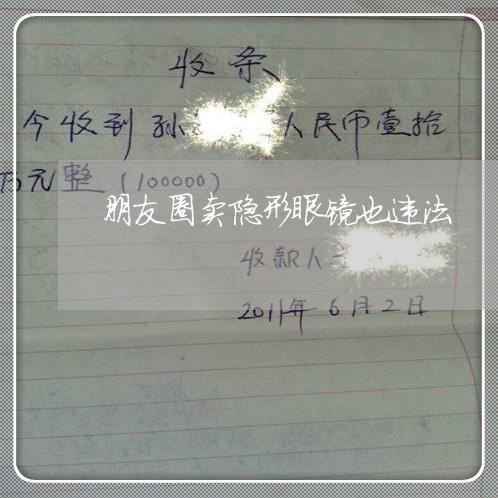 收条
今收到孙人民币壹拾
万元整(100000)
朋友圈卖隐形眼镜也违法
收款人
2011年6月2日